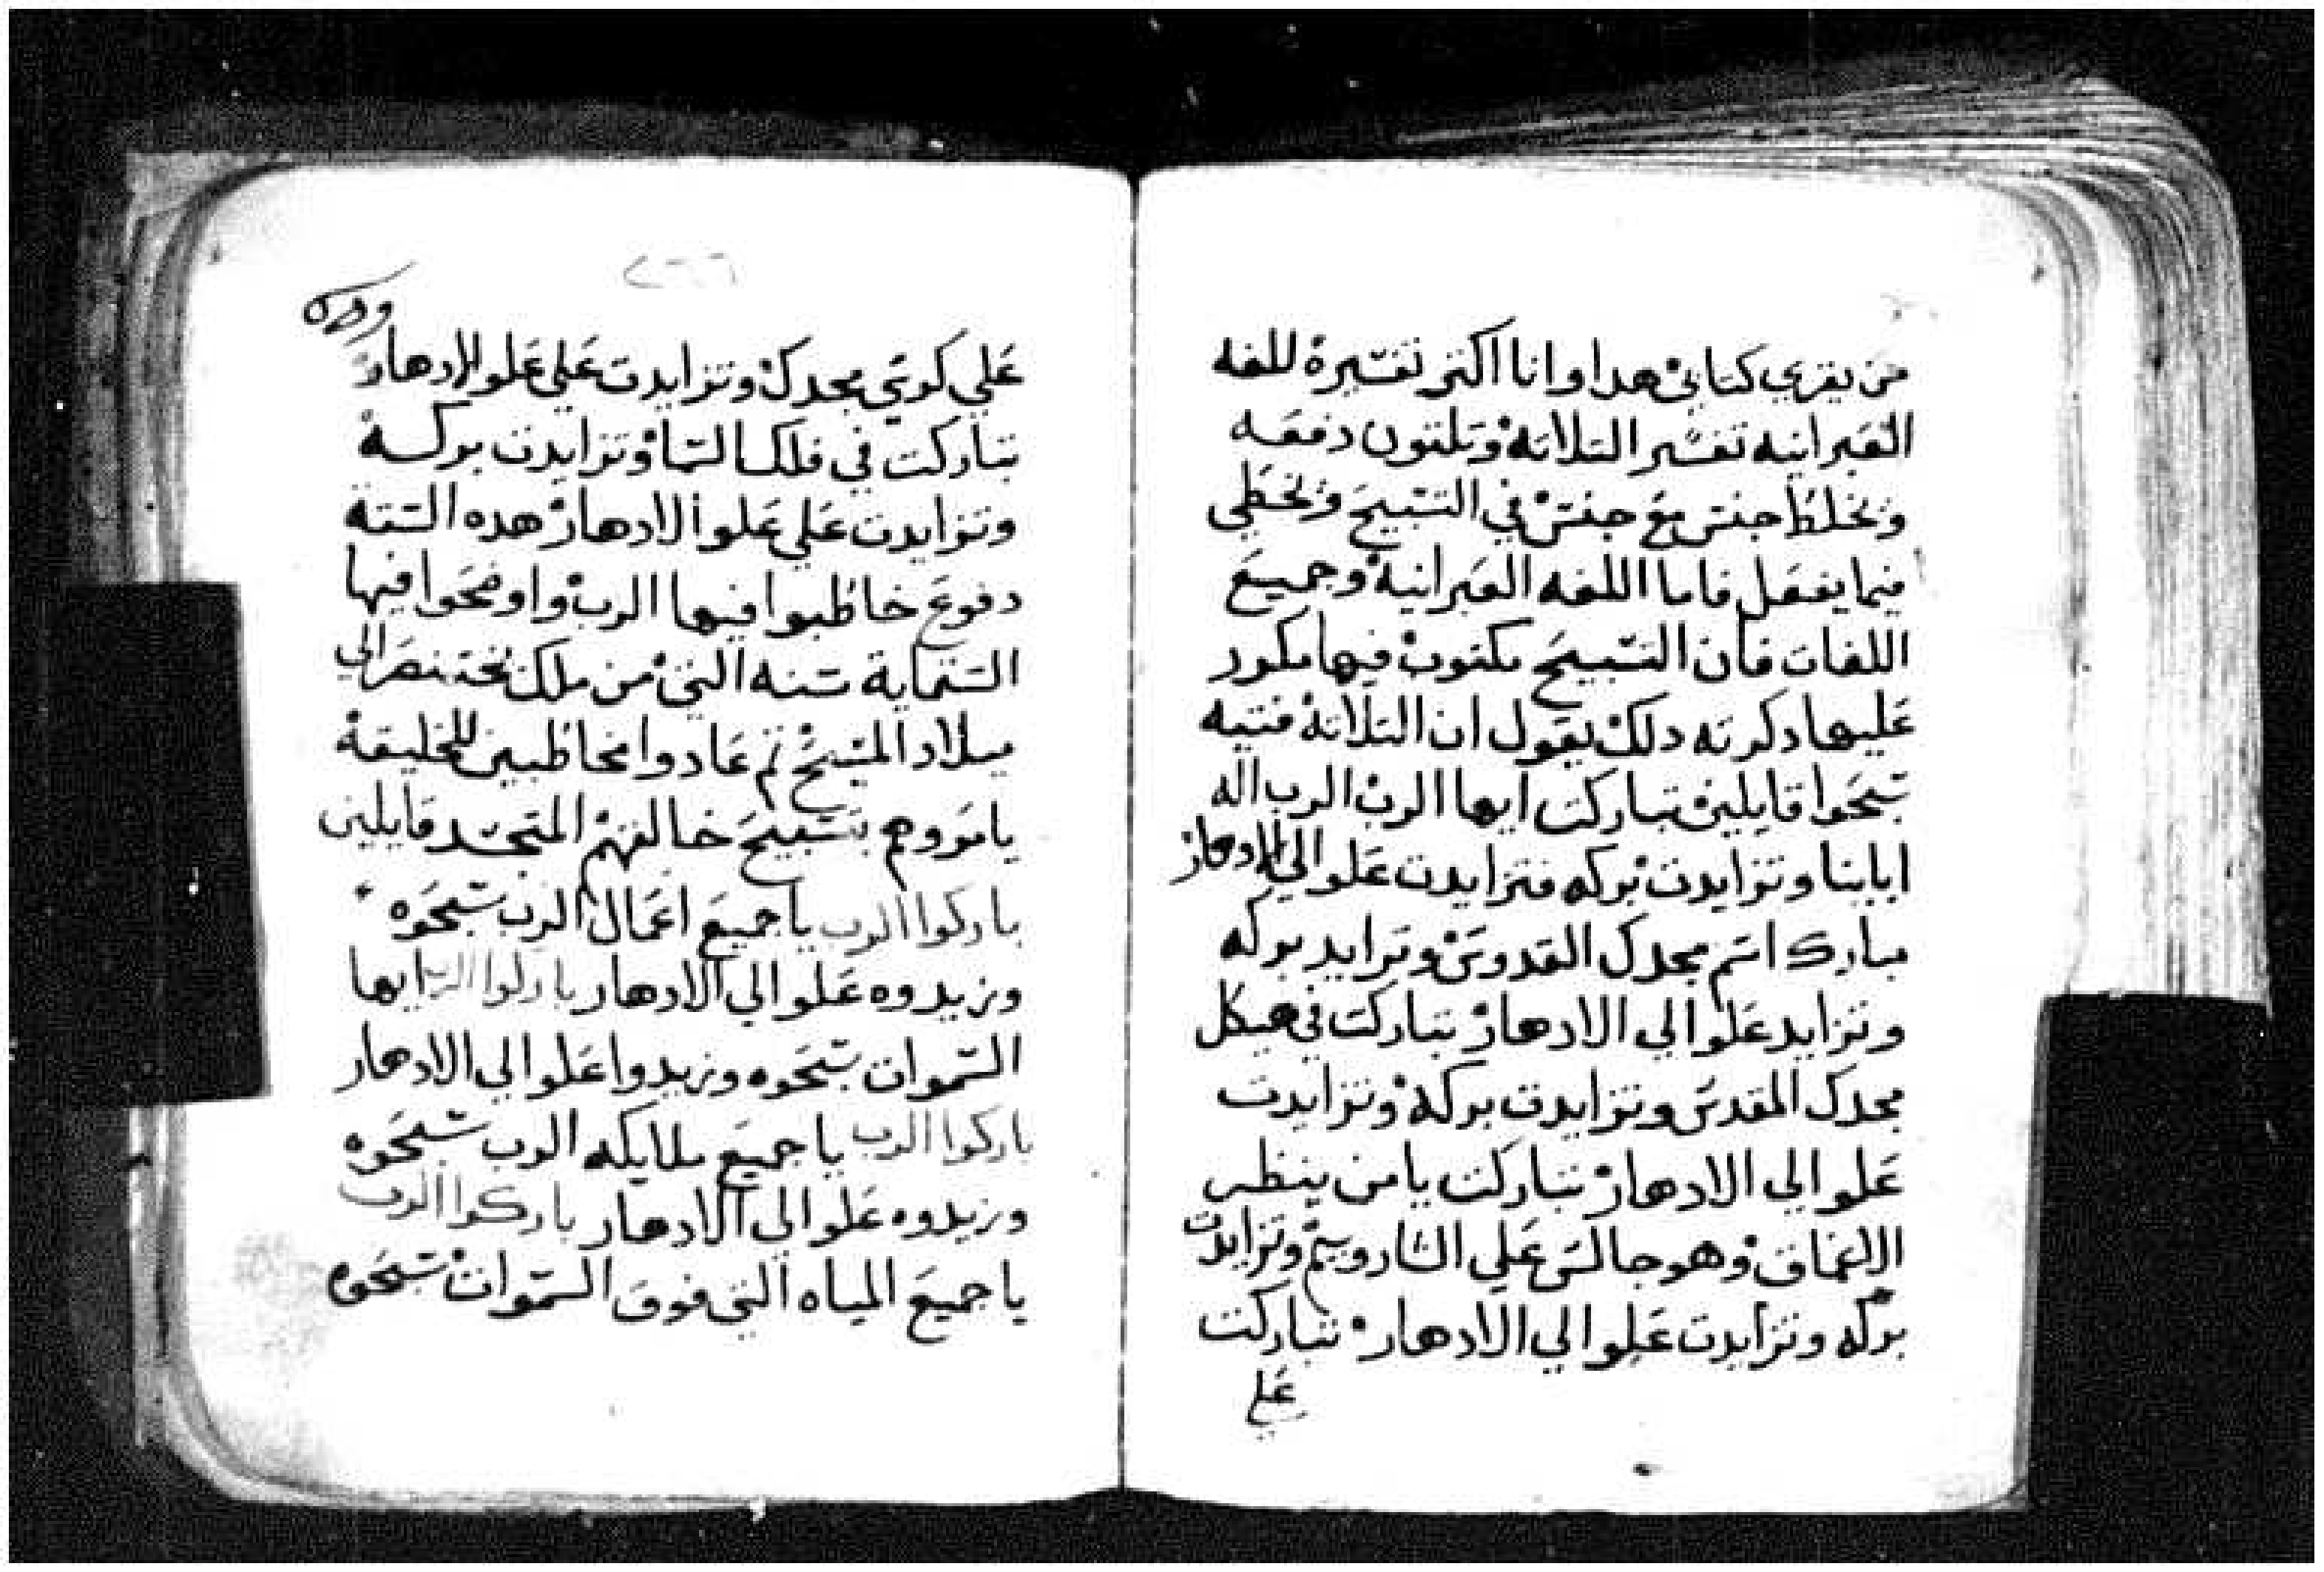 من يقري كتابي هدا وانا اكتر تفسيره للغه
العبرانيه تفسر التلاتة وتلتون دفعه
ونخلط جنس مع جنس في التسبيح ونخطي
فيما يفعل فاما اللغه العبرانية وجميع
اللغات فان التسبيح مكتوب فيها مكرر
عليها دكرته دلك يقول ان التلاتة فتيه
سبحوا قايلين تباركت ايها الرب الرب اله
اباينا وتزايدت بركه فتزايدت علوا الي الادهار
مبارك اسم مجدك القدوس وتزايد بركه
وتزايد علوا الي الادهار تباركت في هيكل
مجدك المقدس وتزايدت بركة وتزايدت
علوا الي الادهار تباركت يا من ينظر
الاعماق وهو جالس علي الشاروبيم وتزايدت
بركه وتزايدت علوا الي الادهار تباركت
علي
٢٦٦
علي كرسي مجدك وتزايدت علي علو الادهار
تباركت في فلك السما وتزايدت بركة
وتزايدت علي علو الادهار هده الستة
دفوع خاطبوا فيها الرب واوضحوا فيها
الستماية سنه التي من ملك بختنصر الي
ميلاد المسيح تم عادوا مخاطبين للخليقة
يامروهم بتسبيح خالقهم المتجسد قايلين
باركوا الرب يا جميع اعمال الرب سبحوه
وزيدوه علوا الي الادهار باركوا الرب ايها
السموات سبحوه وزيدوا علوا الي الادهار
باركوا الرب يا جميع ملايكه الرب سبحوه
وزيدوه علوا الي الادهار باركوا الرب
يا جميع المياه التي فوق السموات سبحوه